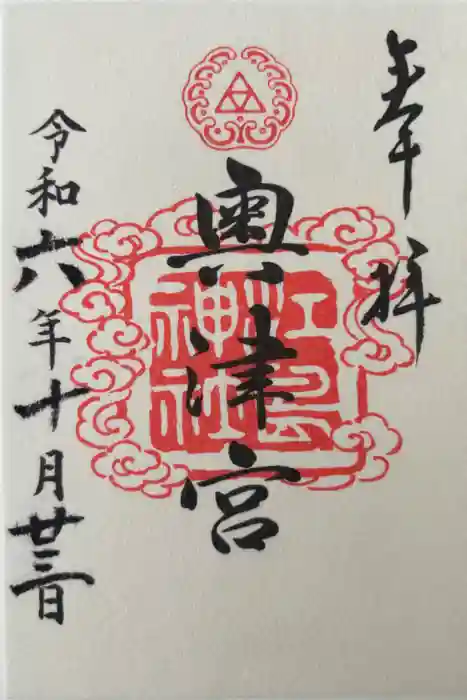 奉拝
奥津宮
江島
神社
令和六年十月廿三日